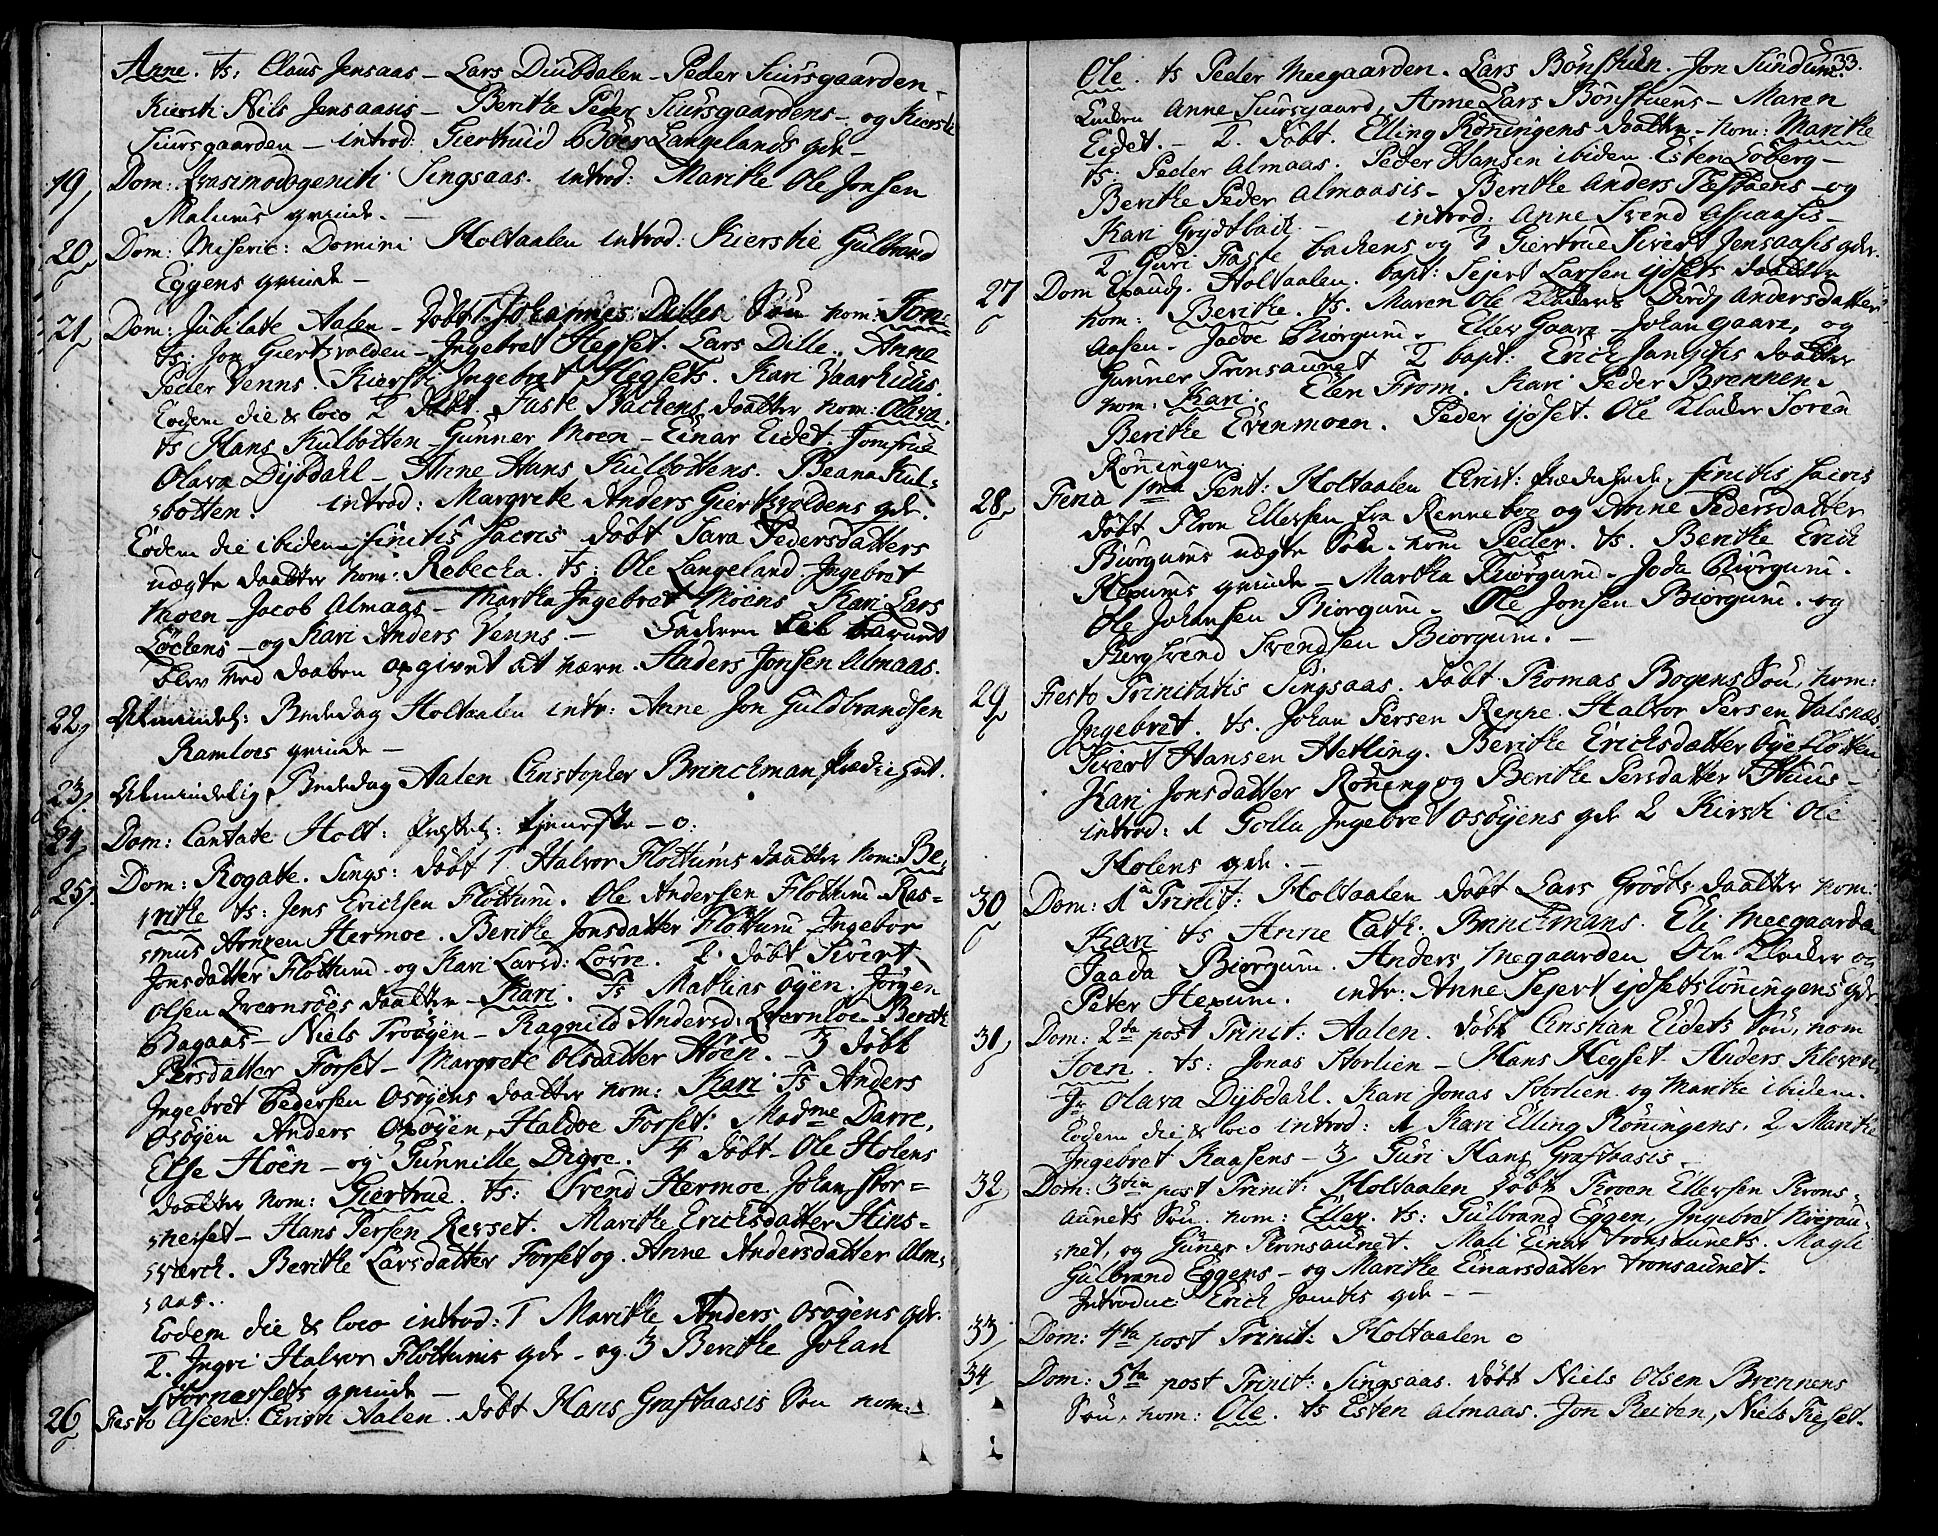 Anne. ts: Claus Jensaas – Lars Duubdalen – Peder Siursgaarden –
Kiersti Niels Jensaasis – Berithe Peder Siursgaardens – og Kiersti
Siursgaarden – introd: Giertruid Langelands qde –
19 Dom: Qvasimodogeniti Singsaas. introd: Marithe Ole Jonsen
Malums qvinde. –
20 Dom: Miseric: Domini Holtaalen introd: Kierstie Gulbrand
Eggens qvinde –
21 Dom: Jubilate Aalen – døbt Johannes Dilles Søn nom: Jon
ts: Jon Giertsvolden – Ingebret Hegset. Lars Dille. Anne
Peder Venns. Kiersti Ingebret Hegsets. Kari Vaarhuus.
Eodem die & loco 2 døbt Faste Backens daatter nom: Olava.
ts Hans Kulbotten – Gunner Moen – Einar Eidet. Jomfrue
Olava Dybdahl – Anne Hans Kulbottens. Beana Kul-
botten. introd: Margrete Anders Giertsvoldens qde.
Eodem die ibidem finitis sacris døbt Sara Pedersdatters
uægte daatter nom: Rebecka. ts: Ole Langeland Ingebret
Moen – Jacob Almaas – Martha Ingebret Moens Kari Lars
Løckens – og Kari Anders Venns – Faderen til barnet
blev ved daaben opgivet at være Anders Jonsen Almaas.
22 Almindel: Bededag Holtaalen intr: Anne Jon Guldbrandsen
Ramloes qvinde –
23 Almindelig Bededag Aalen Christopher Brinchman prædiket.
24 Dom: Cantate Holt: tieneste – 0.
25 Dom: Rogate. Sings: døbt 1 Halvor Flottums daatter nom: Be-
rithe ts: Jens Erichsen Flottum. Ole Andersen Flottum Ras-
mus Arntzen Hermoe. Berithe Jonsdatter Flottum Ingebor
Jonsdatter Flottum – og Kari Larsd: Lovre. 2. døbt Sivert
Olsen Qvernsøes daatter – Kari. Ts Mathias Øyen. Jørgen
Bagaas – Niels Troøyen – Ragnild Andersd: Berith
Persdatter Forset – Margrete Olsdatter Høen. – 3 døbt
Ingebret Pedersen Osøyens daatter nom: Kari Ts Anders
Osøyen Anders Osøyen, Haldoe Forset: Madme Darre,
Else Høen – og Gunnille Digre. 4 døbt – Ole Holens
daatter nom: Giertrue. ts: Svend Hermoe. Johan Stor-
nesset – Hans Persen Reset. Marithe Ericksdatter Hins-
værck. Berithe Larsdatter Forset og Anne Andersdatter Alm-
aas..
Eodem die & loco introd: 1 Marithe Anders Osøyens qde.
2. Ingri Halvor Flottums qde – og 3 Berithe Johan
Stornessets qvinde –
26 Festo Ascen: Christi Aalen. døbt Hans Graftaasis Søn nom:
33.
Ole. ts Peder Meegaarden. Lars Bønskuen. Jon Sundum.
Anne Siursgaard, Anne Lars Bønstuens – Maren
Eidet. – 2. døbt. Elling Rønningens daatter nom: Marithe
ts: Peder Almaas. Peder Hansen ibidem. Esten Løberg –
Berithe Peder Almaasis – Berithe Anders – og
Kari Grydtback – introd: Anne Svend Aspaasis –
2 Guri Faste backens og 3 Giertrue Sivert Jensaasis qde.
27 Dom Exaudj. Holtaalen. bapt: Sejert Larsen ydsets daatter
nom: Berithe. ts. Maren Ole Klockers Dirdj Andersdatter
Aasen – Jadoe Biorgum. Eller Gaare Johan Gaare, og
Gunner Tronsaunet 2 bapt: Erich daatter
nom. Kari. Elen From. Kari Peder Brennen.
Berithe Evenmoen. Peder ydset. Ole Klocker Søren
Rønningen.
28 Feria 1ma Pent: Holtaalen Christ: prædikede. finitis sacris
døbt Thron Ellersen fra Renneboe og Anne Pedersdatter
Biorgums uægte Søn. nom Peder. ts. Berithe Erich
Hexums qvinde – Martha Biorgum – Joda Biorgum.
Ole Johansen Biorgum – Ole Jonsen Biorgum. og
Berg Svend Svendsen Biorgum. –
29 Festo Trinitatis Singsaas. døbt Thomas Bogens Søn, nom:
Ingebret. ts. Johan Persen Reppe. Halvor Persen Valsnæs
Sivert Hansen Hetling. Berithe Ericksdatter Bye Flotten
Kari Jonsdatter Rønning og Berithe Persdatter Huus –
introd: 1 Gollu Ingebret Osøyens qde 2 Kirsti Ole
Holens qde. –
30 Dom: 1a Trinit: Holtaalen døbt Lars Grødts daatter nom:
Kari ts Anne Cath: Brinchmans. Eli Meegaarden
Jaada Biorgum. Anders Megaarden Ole Klocker og
Peter Hexum. intr: Anne Sejert ydsetsløningens qde
31 Dom: 2da post Trinit: Aalen. døbt Christian Eidets Søn, nom
Joen. ts: Jonas Storlien – Hans Hegset. Anders Kleven.
Jr Olava Dybdahl. Kari Jonas Storlien. og Marithe ibidem.
Eodem die & loco introd: 1 Kari Elling Rønningens, 2 Marithe
Ingebret Kaasens – 3 Guri Hans Graftaasis
32 Dom: 3tia post Trinit: Holtaalen døbt Troen Ellevsen Trons-
aunets Søn. nom: Eller. ts: Gulbrand Eggen, Ingebret
net, og Guner Tronsaunet. Mali Einar Tronsaunets. Magli
Gulbrand Eggens – og Marithe Einarsdatter Tronsaunet.
Introduc Erich qde – –
33 Dom: 4ta post Trinit: Holtaalen o
34 Dom: 5ta post Trinit: Singsaas. døbt Niels Olsen Brennens
Søn, nom: Ole. ts Esten Almaas. Jon Reiten, Niels